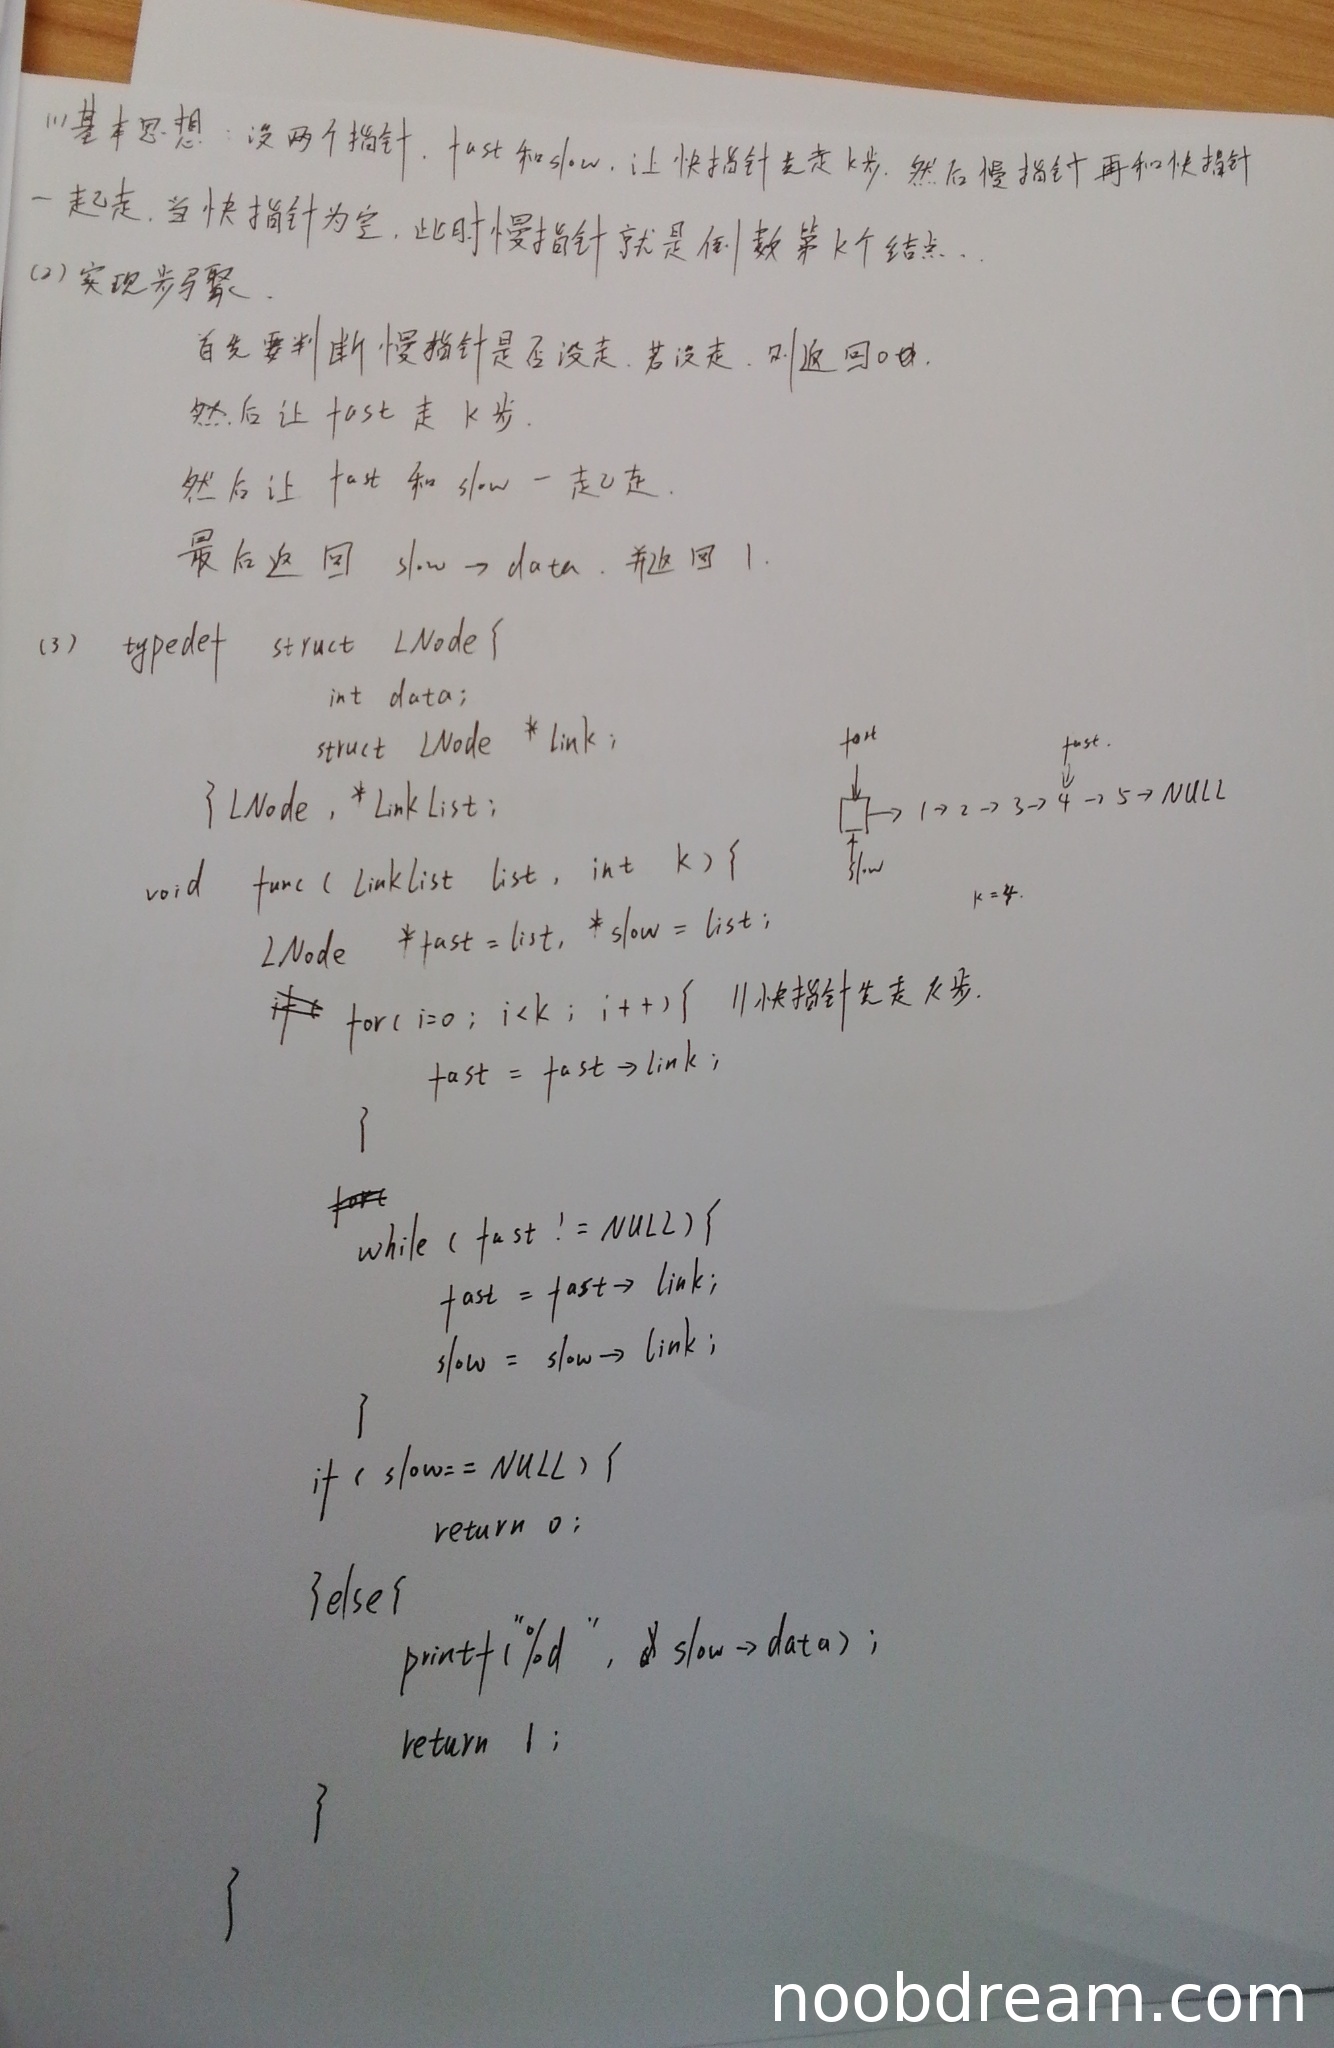 (1)基本思想：设两个指针，fast和slow，让快指针先走k步，然后慢指针再和快指针
一起走，当快指针为空，此时慢指针就是倒数第k个结点..
(2)实现步骤.
首先要判断慢指针是否没走，若没走，则返回0.
然后让 fast 走 k 步.
然后让 fast 和 slow 一起走.
最后返回 slow→data．并返回 1.
(3) typedef struct LNode{
int data;
struct LNode *link;
}LNode, *LinkList;
fast fast.
→ 1→2→3→4→5→NULL
slow
k=4.
void func(LinkList list, int k){
LNode *fast=list, *slow=list;
for(i=0; i<k; i++){ //快指针先走k步.
fast = fast→link;
}
while(fast != NULL){
fast = fast→link;
slow = slow→link;
}
if(slow==NULL){
return 0;
}else{
printf("%d", slow→data);
return 1;
}
}
noobdream.com